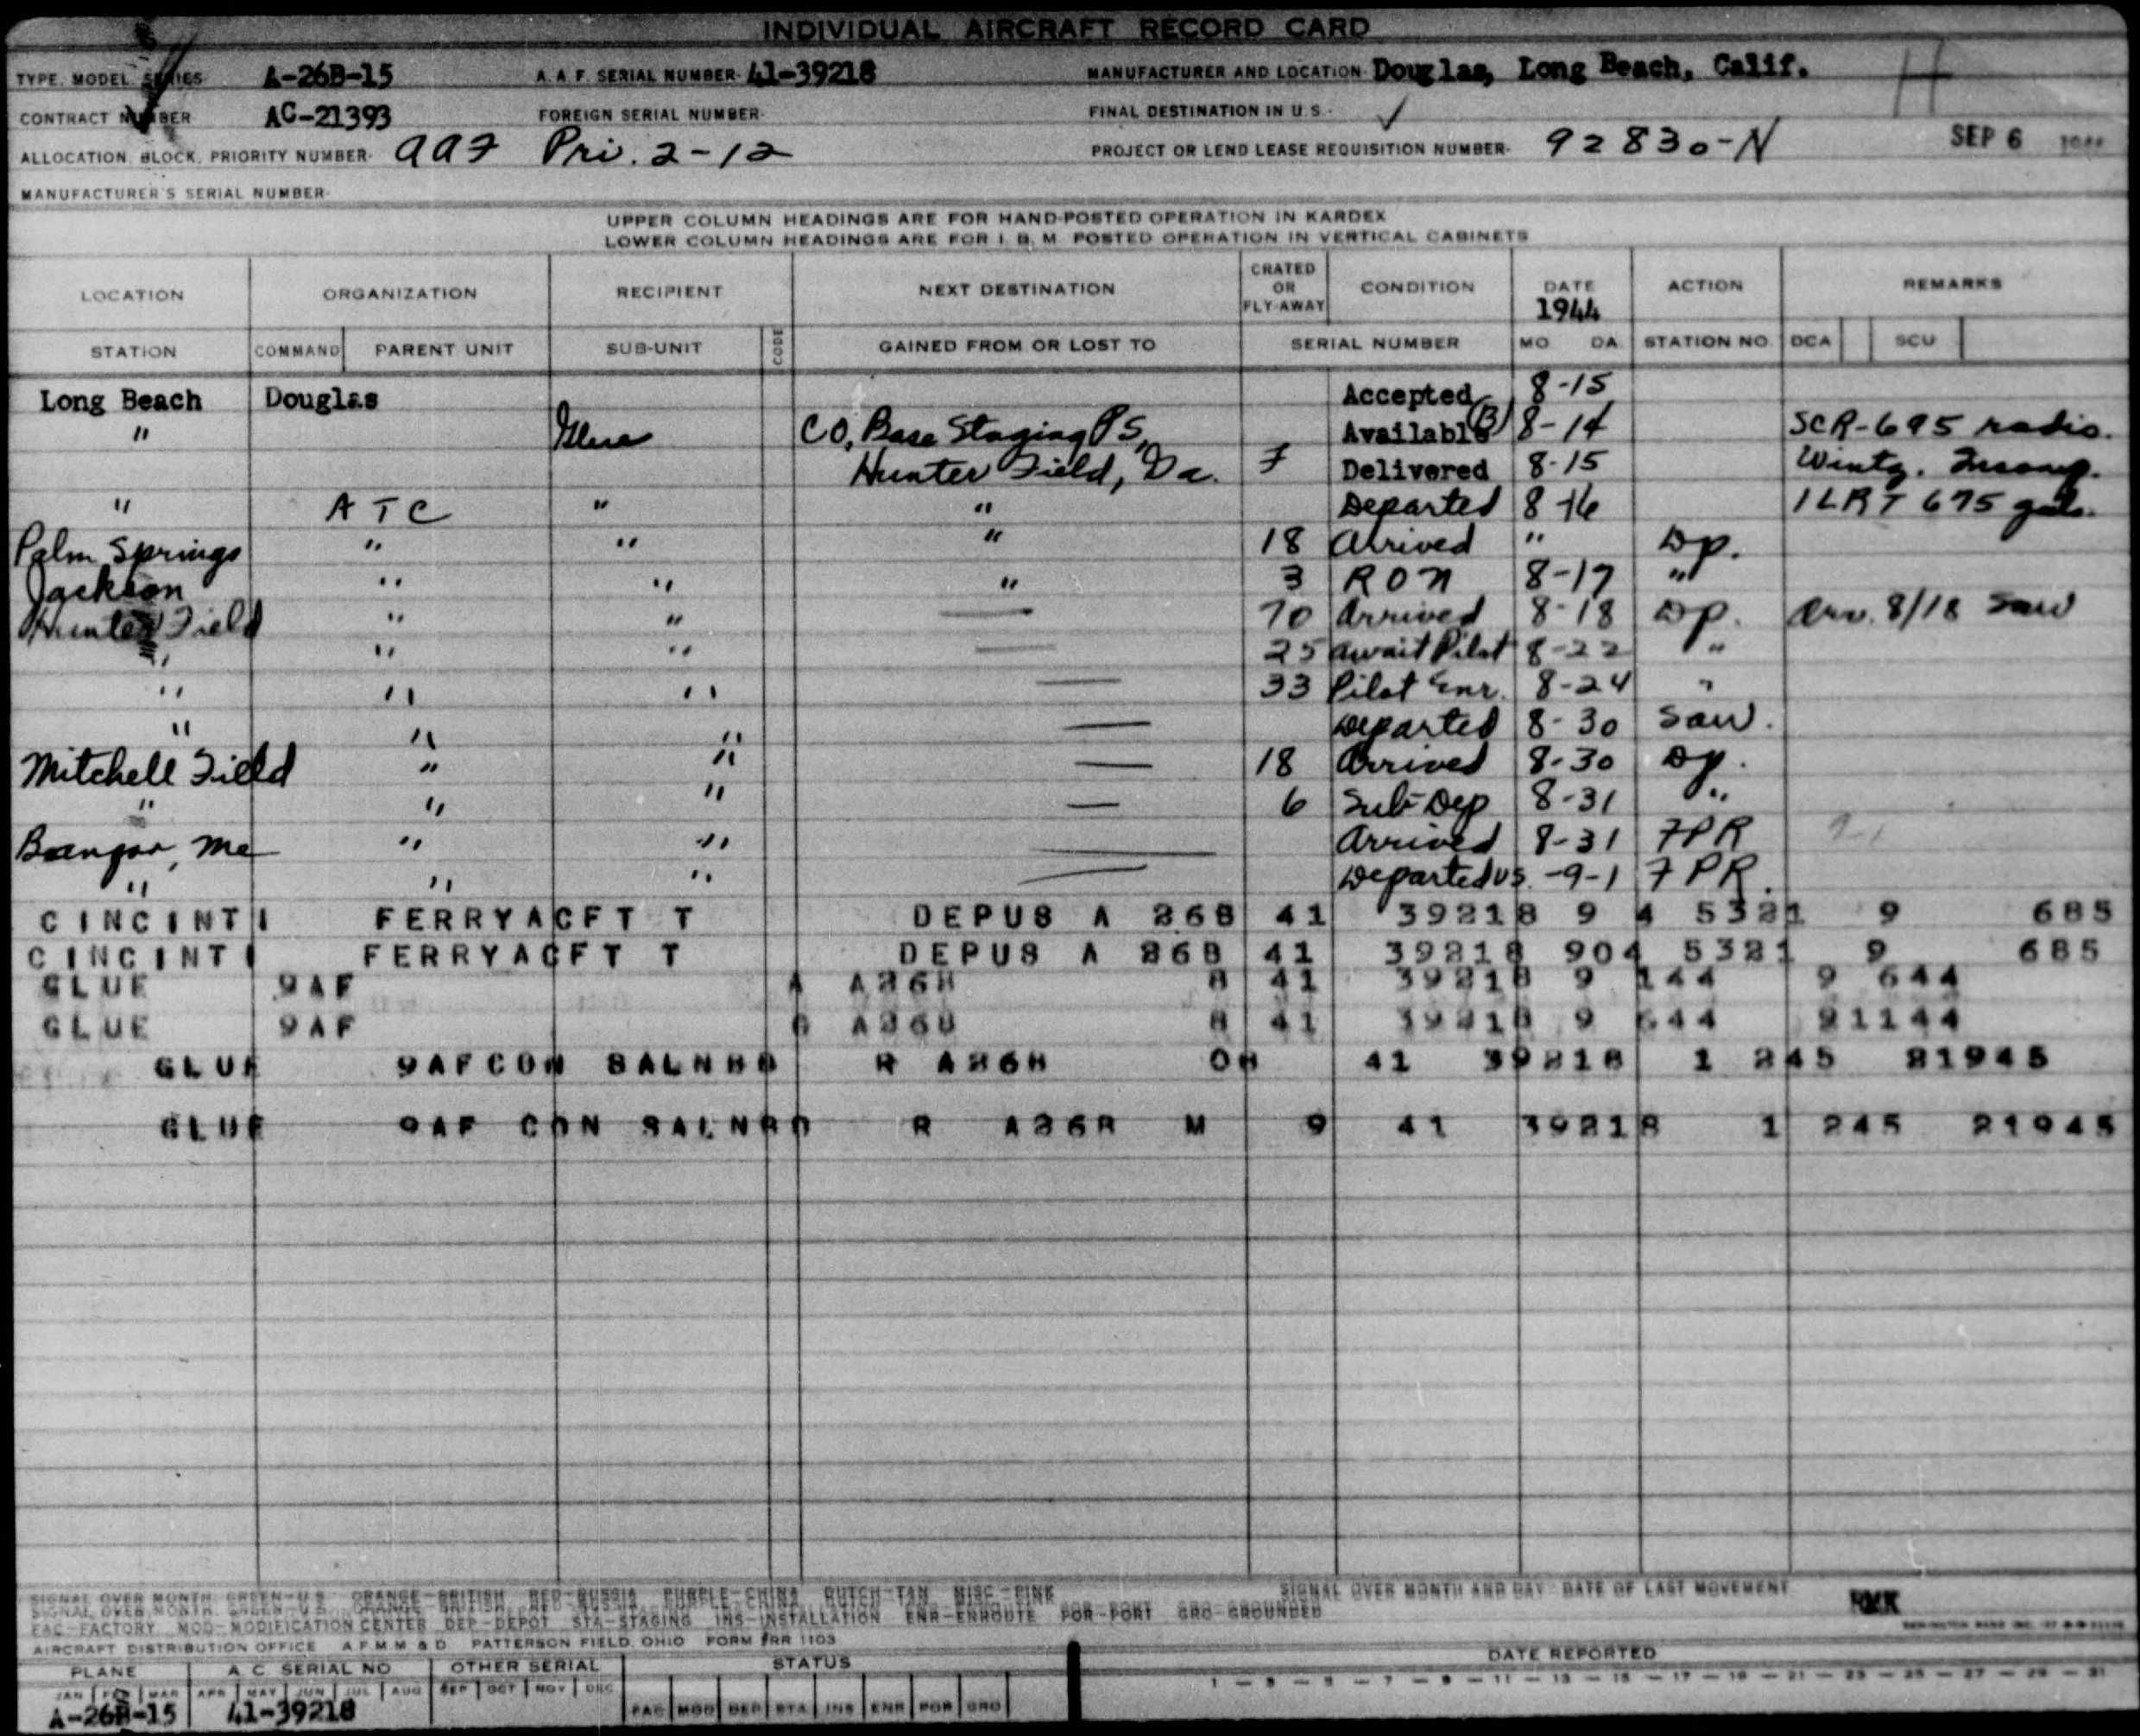 INDIVIDUAL AIRCRAFT RECORD CARD
TYPE, MODEL, SERIES A-26B-15 A. A. F. SERIAL NUMBER- 41-39218 MANUFACTURER AND LOCATION- Douglas, Long Beach, Calif.
CONTRACT NUMBER AC-21393 FOREIGN SERIAL NUMBER- FINAL DESTINATION IN U S - ✓
ALLOCATION, BLOCK, PRIORITY NUMBER- aaf Pri. 2-12 PROJECT OR LEND LEASE REQUISITION NUMBER- 92830-N SEP 6 1944
MANUFACTURER'S SERIAL NUMBER-
UPPER COLUMN HEADINGS ARE FOR HAND-POSTED OPERATION IN KARDEX
LOWER COLUMN HEADINGS ARE FOR I. B. M. POSTED OPERATION IN VERTICAL CABINETS
LOCATION ORGANIZATION RECIPIENT NEXT DESTINATION CRATED OR FLY-AWAY CONDITION DATE 1944 ACTION REMARKS
STATION COMMAND PARENT UNIT SUB-UNIT CODE GAINED FROM OR LOST TO SERIAL NUMBER MO DA STATION NO. DCA SCU
Long Beach Douglas Accepted 8-15
" Glue CO, Base Staging PS, Available (B) 8-14 SCR-695 radio.
Hunter Field, Ga. F Delivered 8-15 Wintz. Incomp.
" ATC " " Departed 8-16 1 LRT 675 gal.
Palm Springs " " " 18 Arrived " Dp.
Jackson " " " 3 RON 8-17 "
Hunter Field " " — 70 Arrived 8-18 Dp. Arv. 8/18 Saw
" " " — 25 Await Pilot 8-22 "
" " " — 33 Pilot Enr. 8-24 "
" " " — Departed 8-30 Saw.
Mitchell Field " " — 18 Arrived 8-30 Dp.
" " " — 6 Sub-Dep 8-31 "
Bangor, Me " " — Arrived 8-31 7PR
" " " — Departed US. -9-1 7PR.
CINCINTI FERRYACFT T DEPUS A 26B 41 39218 9 4 5321 9 685
CINCINTI FERRYACFT T DEPUS A 26B 41 39218 904 5321 9 685
GLUE 9AF A A26B B 41 39218 9 144 9 644
GLUE 9AF G A26B B 41 39218 9 644 91144
GLUE 9AFCON SALNBD R A26B 41 39218 1 245 21945
GLUE 9AF CON SALNBD R A26B M 9 41 39218 1 245 21945
SIGNAL OVER MONTH GREEN-U.S. ORANGE-BRITISH RED-RUSSIA PURPLE-CHINA DUTCH-TAN MISC-PINK SIGNAL OVER MONTH AND DAY DATE OF LAST MOVEMENT
FAC-FACTORY MOD-MODIFICATION CENTER DEP-DEPOT STA-STAGING INS-INSTALLATION ENR-ENROUTE POR-PORT GRO-GROUNDED
AIRCRAFT DISTRIBUTION OFFICE A F M M & D PATTERSON FIELD, OHIO FORM #RR 1103
PLANE A C SERIAL NO OTHER SERIAL STATUS DATE REPORTED
JAN FEB MAR APR MAY JUN JUL AUG SEP OCT NOV DEC 1 — 3 — 5 — 7 — 9 — 11 — 13 — 15 — 17 — 19 — 21 — 23 — 25 — 27 — 29 — 31
A-26B-15 41-39218 FAC MOD DEP STA INS ENR POR GRO